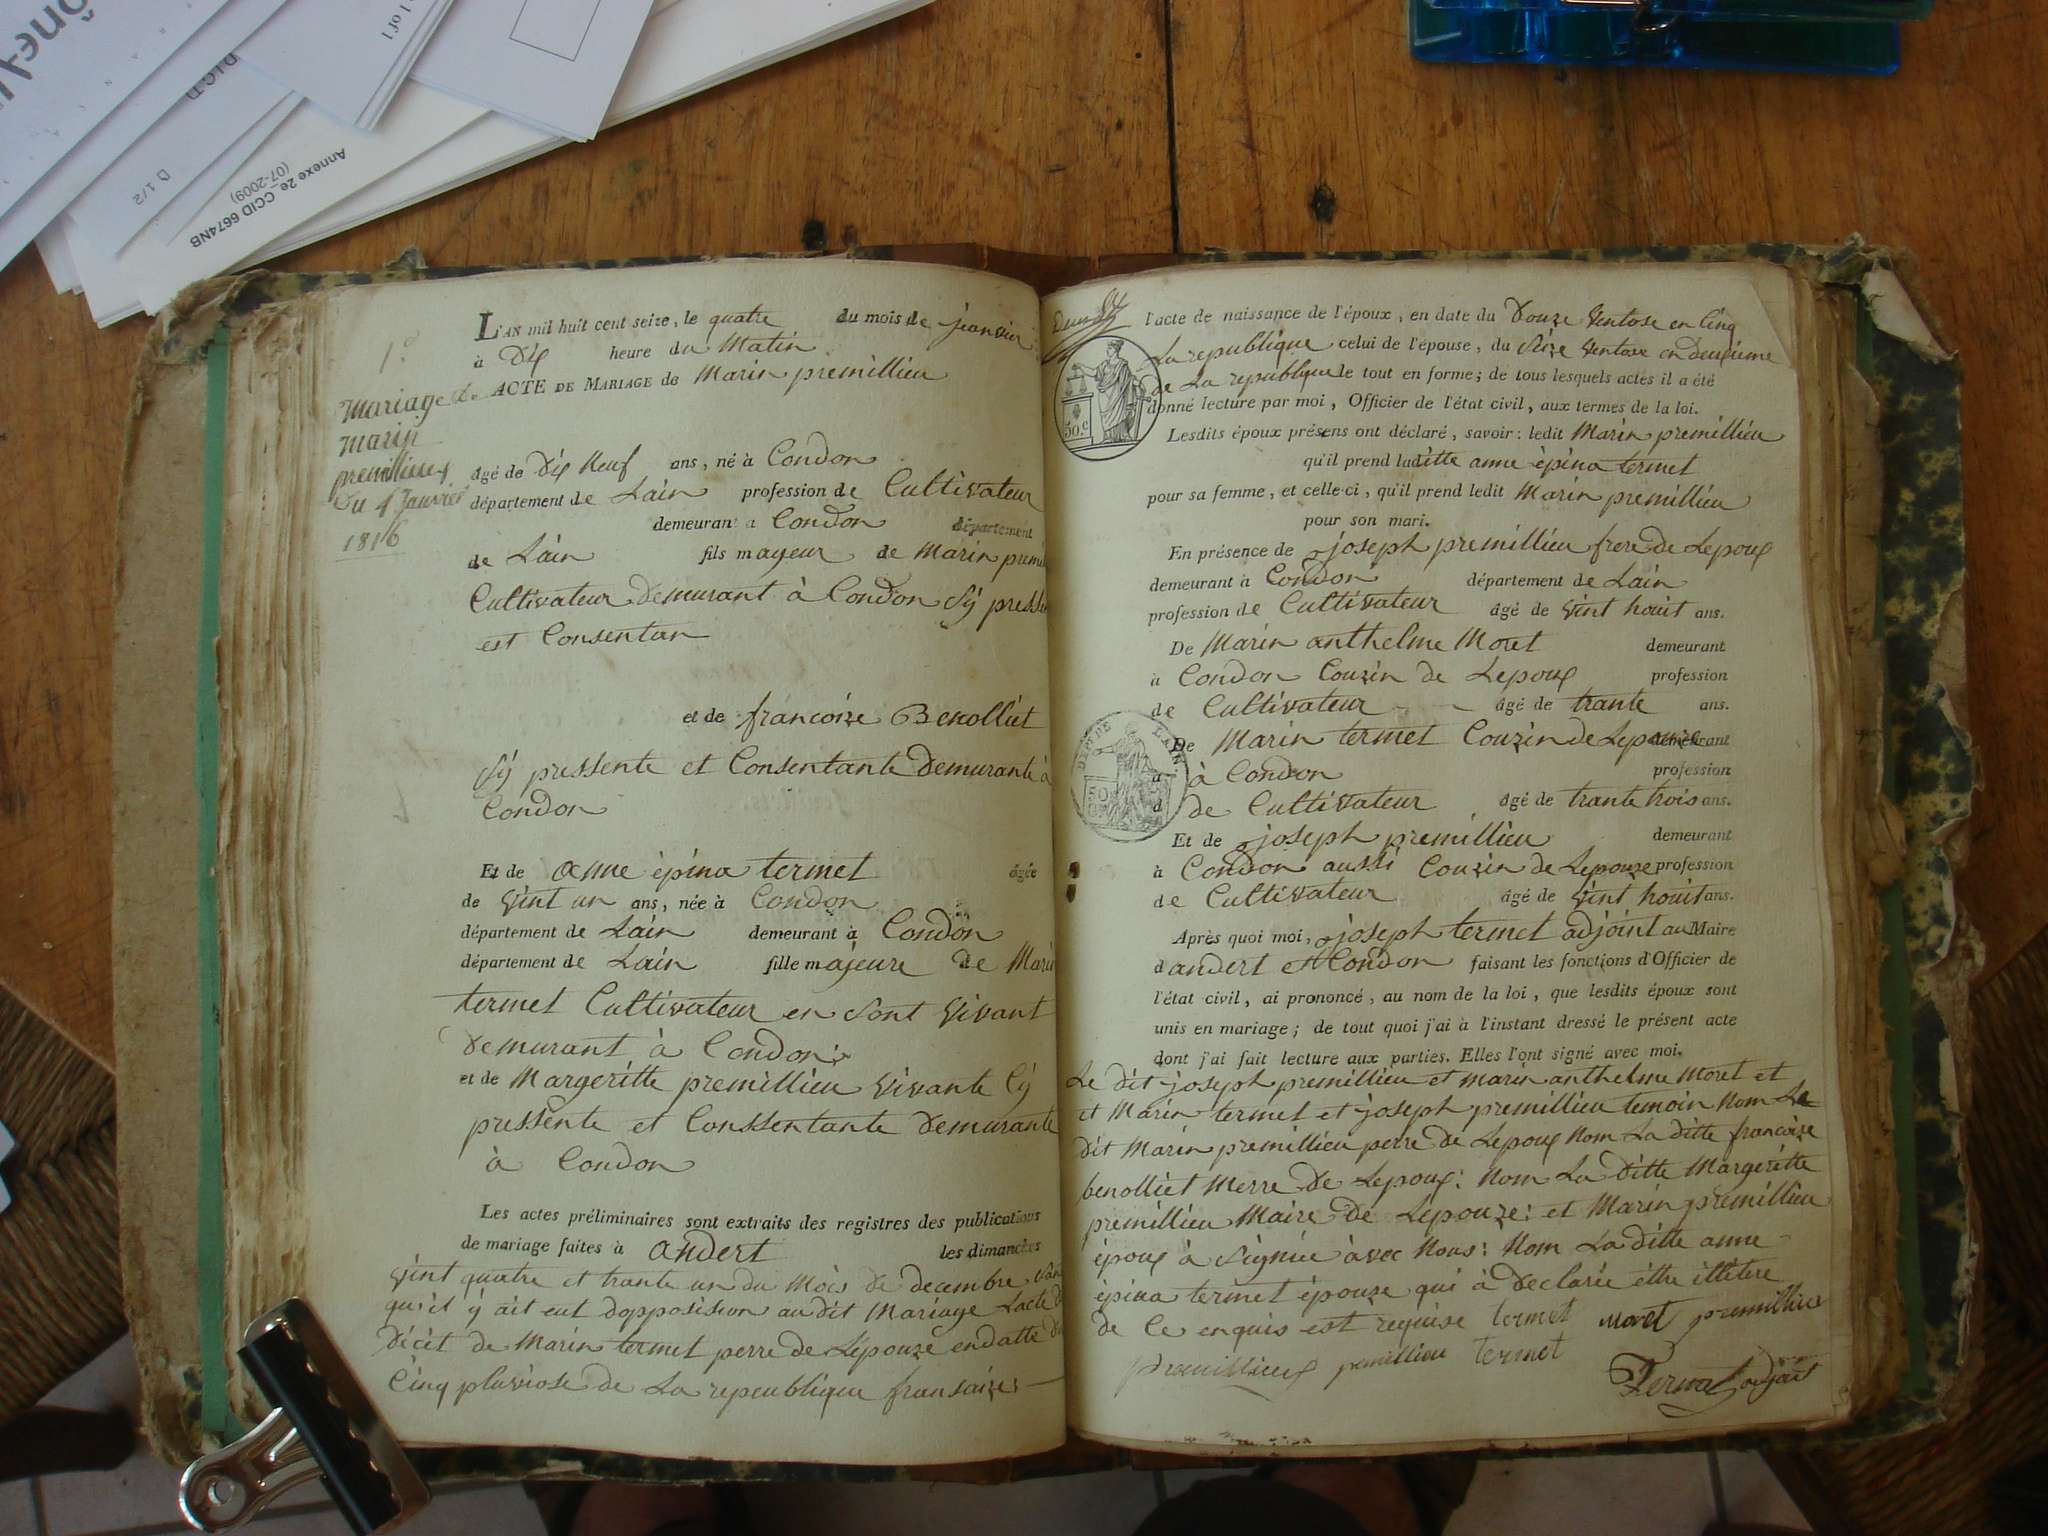 1 of 1
DICTI
D 1/2
Annexe 2e_CCID 6674NB
(07-2009)
1.°
Mariage de
Marin
premillieux
Du 4 Janvier
1816
L'AN mil huit cent seize, le quatre du mois de jeanvier
à Dix heure du Matin
ACTE DE MARIAGE de Marin premillieu
âgé de Dix Neuf ans, né à Condon
département de Lain profession de Cultivateur
demeurant à Condon département
de Lain fils mayeur de Marin premi
Cultivateur Demurant à Condon Sÿ pressen
est Consentan
et de françoize Benolliet
Sÿ pressente et Consentante Demurante à
Condon
Et de anne èpina termet âgée
de Vint un ans, née à Condon
département de Lain demeurant à Condon
département de Lain fille majeure de Marin
termet Cultivateur en Sont Vivant
Demurant à Condon
et de Margeritte premillieu Vivante Cÿ
pressente et Conssentante Demurante
à Condon
Les actes préliminaires sont extraits des registres des publications
de mariage faites à andert les dimanches
Vint quatre et trante un du Mois de decembre San
qu'il ÿ ait eut dopposision au dit Mariage Lacte d
Décèt de Marin termet perre de Lépouzé endatte du
Cinq pluviose de La republique fransaize
l'acte de naissance de l'époux, en date du Douze Ventose en Cinq
La republique celui de l'épouse, du Seize Ventose en deuxieme
de La republique le tout en forme; de tous lesquels actes il a été
donné lecture par moi, Officier de l'état civil, aux termes de la loi.
50.c
Lesdits époux présens ont déclaré, savoir: ledit Marin premillieu
qu'il prend laditte anne èpina termet
pour sa femme, et celle-ci, qu'il prend ledit Marin premillieu
pour son mari.
En présence de joseph premillieu frere de Lepoux
demeurant à Condon département de Lain
profession de Cultivateur âgé de Vint houit ans.
De Marin anthelme Moret demeurant
à Condon Couzin de Lepoux profession
de Cultivateur âgé de trante ans.
DEPT DE L'AIN
De Marin termet Couzin de Lepouze demeurant
à à Condon profession
d de Cultivateur âgé de trante trois ans.
Et de joseph premillieu demeurant
à Condon aussi Couzin de Lepouze profession
de Cultivateur âgé de Vint houit ans.
Après quoi moi, joseph termet adjoint au Maire
d'andert et Condon faisant les fonctions d'Officier de
l'état civil, ai prononcé, au nom de la loi, que lesdits époux sont
unis en mariage; de tout quoi j'ai à l'instant dressé le présent acte
dont j'ai fait lecture aux parties. Elles l'ont signé avec moi.
Le dit joseph premillieu et marin anthelme Moret et
et Marin termet et joseph premillieu temoin Nom Le
dit Marin premillieu perre de Lepoux Nom La ditte françoize
benolliet Merre de Lepoux: Nom La ditte Margeritte
premillieu Maire de Lepouze: et Marin premillieu
époux à Seigniée àvec Nous: Nom La ditte anne
èpina termet èpouze qui à Declarée éttre illétere
de Ce enquis est requise termet Moret premillieu
premillieux premillieu termet
Termet adjoint